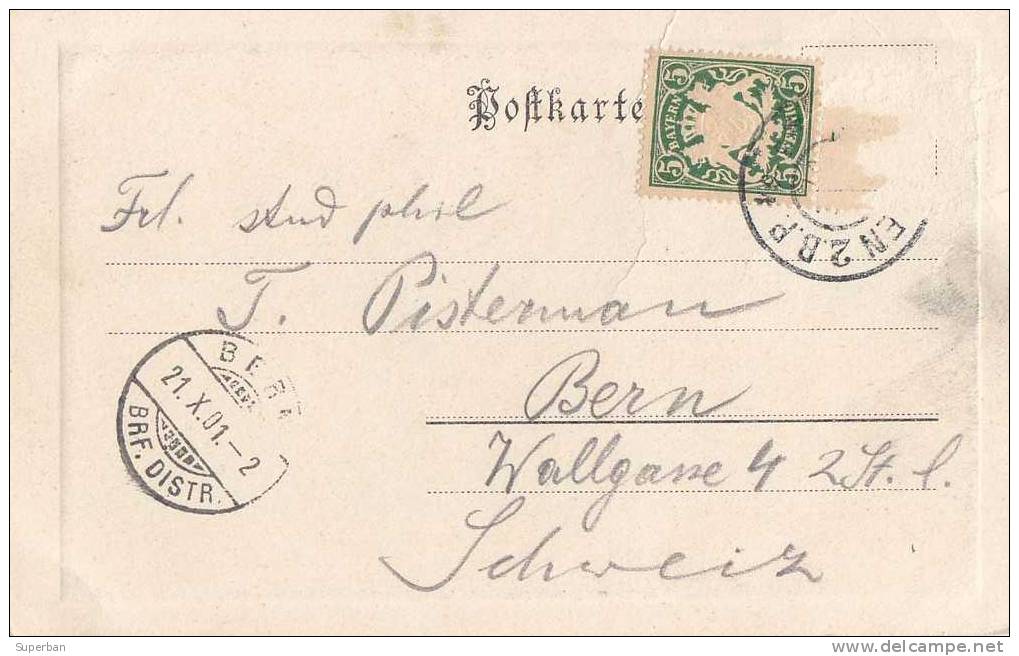 Postkarte
5 5
BAYERN
5 5
EN 2.B.P.
Frl. stud phil
T. Pisterman
BERN
21.X.01.–2
BRF. DISTR.
Bern
Wallgasse 4 2St. l.
Schweiz
Superban
delcampe.net